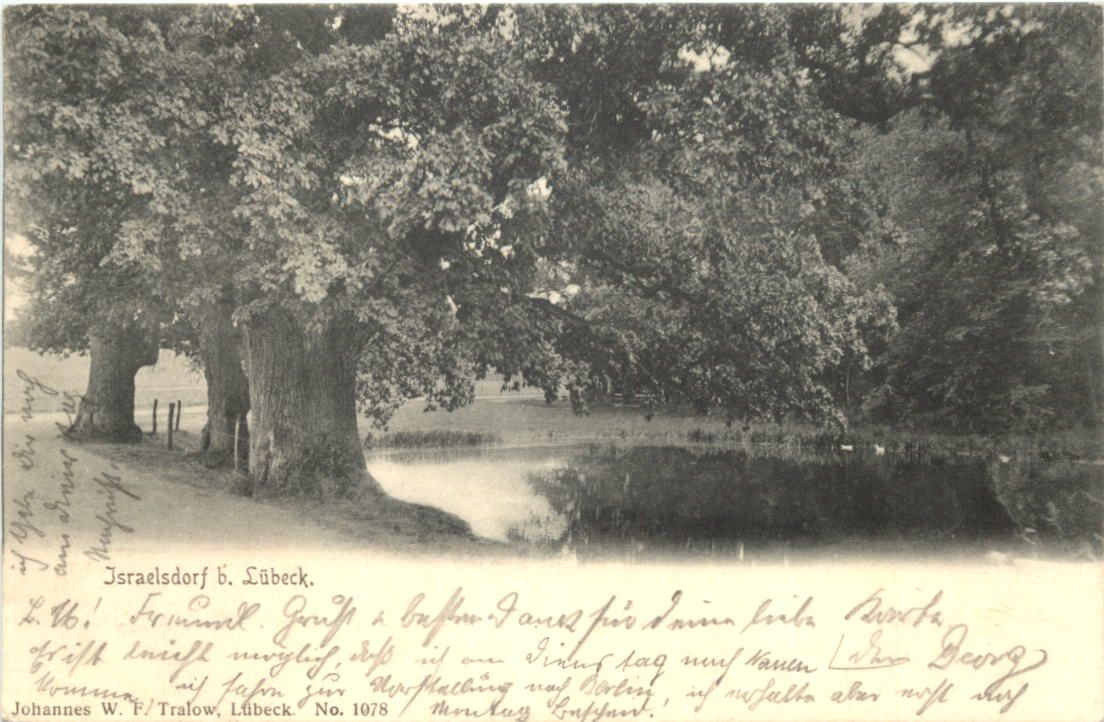 Israelsdorf b. Lübeck.
L. W! Freundl. Gruß u besten Dank für deine liebe Karte.
Es ist leicht möglich, daß ich am Dienstag nach Nauen
komme, ich fahre zur Vorstellung nach Berlin, ich erhalte aber erst noch
Montag Bescheid!
dein Georg
Johannes W. F. Tralow, Lübeck. No. 1078
ich gebe dir noch
am
Nachricht